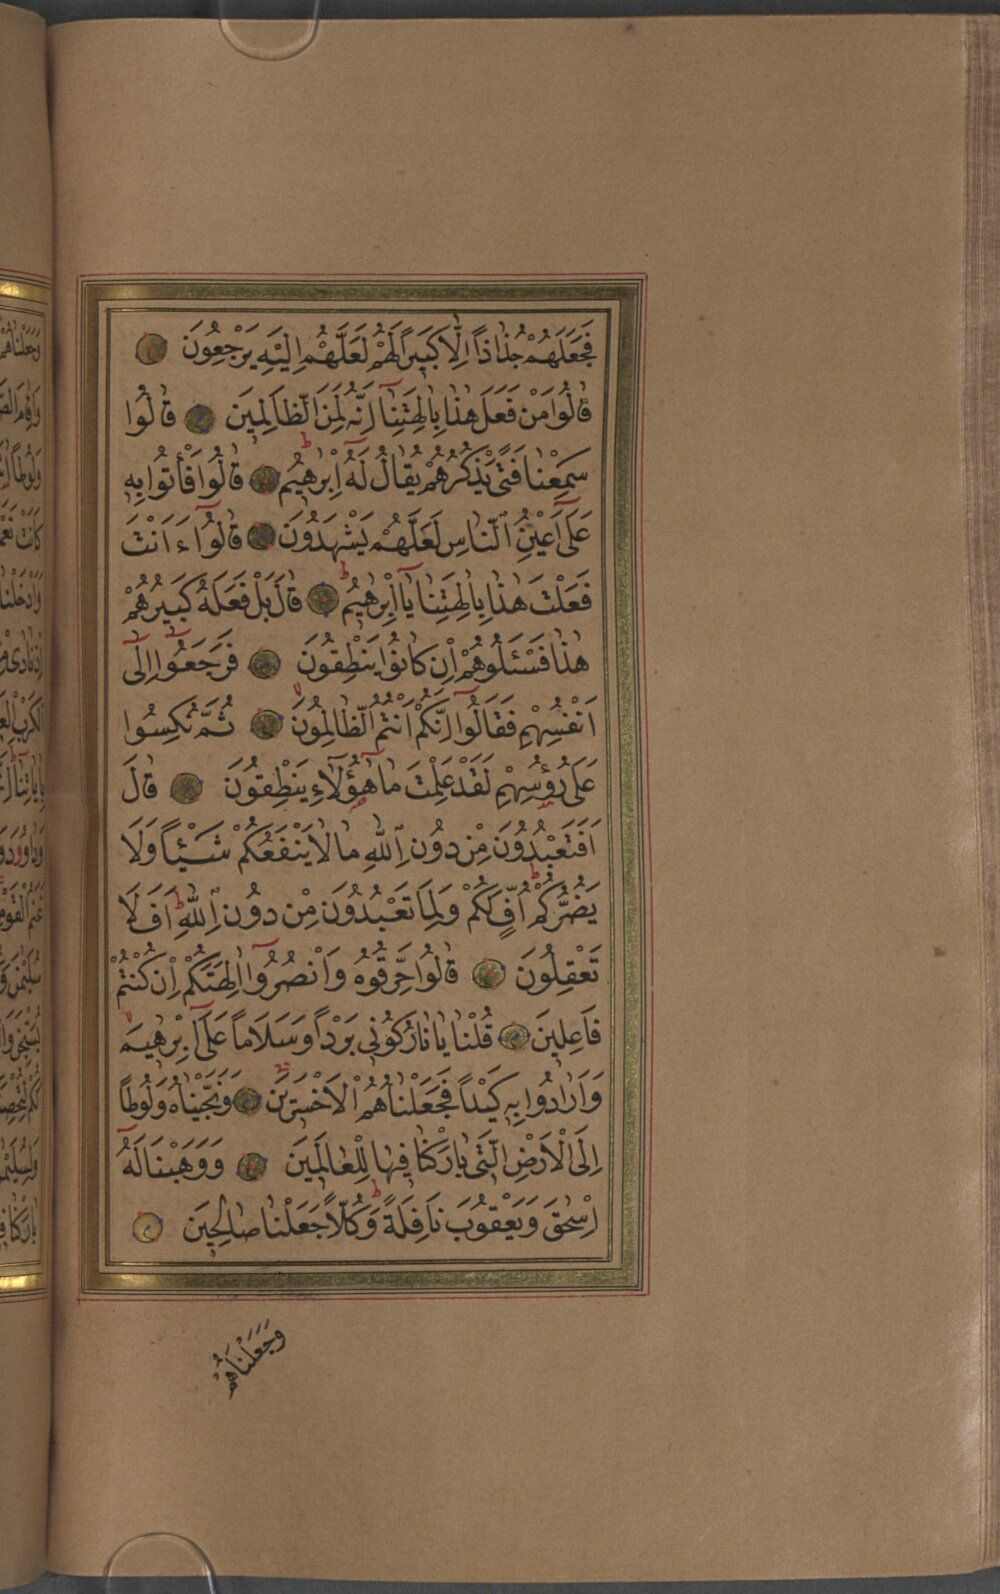 فَجَعَلَهُمْ جُذَاذًا اِلَّا كَبِيرًا لَهُمْ لَعَلَّهُمْ اِلَيْهِ يَرْجِعُونَ
قَالُوا مَنْ فَعَلَ هٰذَا بِاٰلِهَتِنَٓا اِنَّهُ لَمِنَ الظَّالِمِينَ قَالُوا
سَمِعْنَا فَتًى يَذْكُرُهُمْ يُقَالُ لَهُٓ اِبْرٰهِيمُ قَالُوا فَأْتُوا بِهِ
عَلٰٓى اَعْيُنِ النَّاسِ لَعَلَّهُمْ يَشْهَدُونَ قَالُوٓا ءَاَنْتَ
فَعَلْتَ هٰذَا بِاٰلِهَتِنَا يَٓا اِبْرٰهِيمُ قَالَ بَلْ فَعَلَهُ كَبِيرُهُمْ
هٰذَا فَسْـَٔلُوهُمْ اِنْ كَانُوا يَنْطِقُونَ فَرَجَعُوٓا اِلٰٓى
اَنْفُسِهِمْ فَقَالُوٓا اِنَّكُمْ اَنْتُمُ الظَّالِمُونَ ثُمَّ نُكِسُوا
عَلٰى رُؤُسِهِمْ لَقَدْ عَلِمْتَ مَا هٰٓؤُلَٓاءِ يَنْطِقُونَ قَالَ
اَفَتَعْبُدُونَ مِنْ دُونِ اللّٰهِ مَا لَا يَنْفَعُكُمْ شَيْـًٔا وَلَا
يَضُرُّكُمْ اُفٍّ لَكُمْ وَلِمَا تَعْبُدُونَ مِنْ دُونِ اللّٰهِ اَفَلَا
تَعْقِلُونَ قَالُوا حَرِّقُوهُ وَانْصُرُوٓا اٰلِهَتَكُمْ اِنْ كُنْتُمْ
فَاعِلِينَ قُلْنَا يَا نَارُ كُونِى بَرْدًا وَسَلَامًا عَلٰٓى اِبْرٰهِيمَ
وَاَرَادُوا بِهِ كَيْدًا فَجَعَلْنَاهُمُ الْاَخْسَرِينَ وَنَجَّيْنَاهُ وَلُوطًا
اِلَى الْاَرْضِ الَّتِى بَارَكْنَا فِيهَا لِلْعَالَمِينَ وَوَهَبْنَا لَهُٓ
اِسْحٰقَ وَيَعْقُوبَ نَافِلَةً وَكُلًّا جَعَلْنَا صَالِحِينَ
وَجَعَلْنَاهُمْ